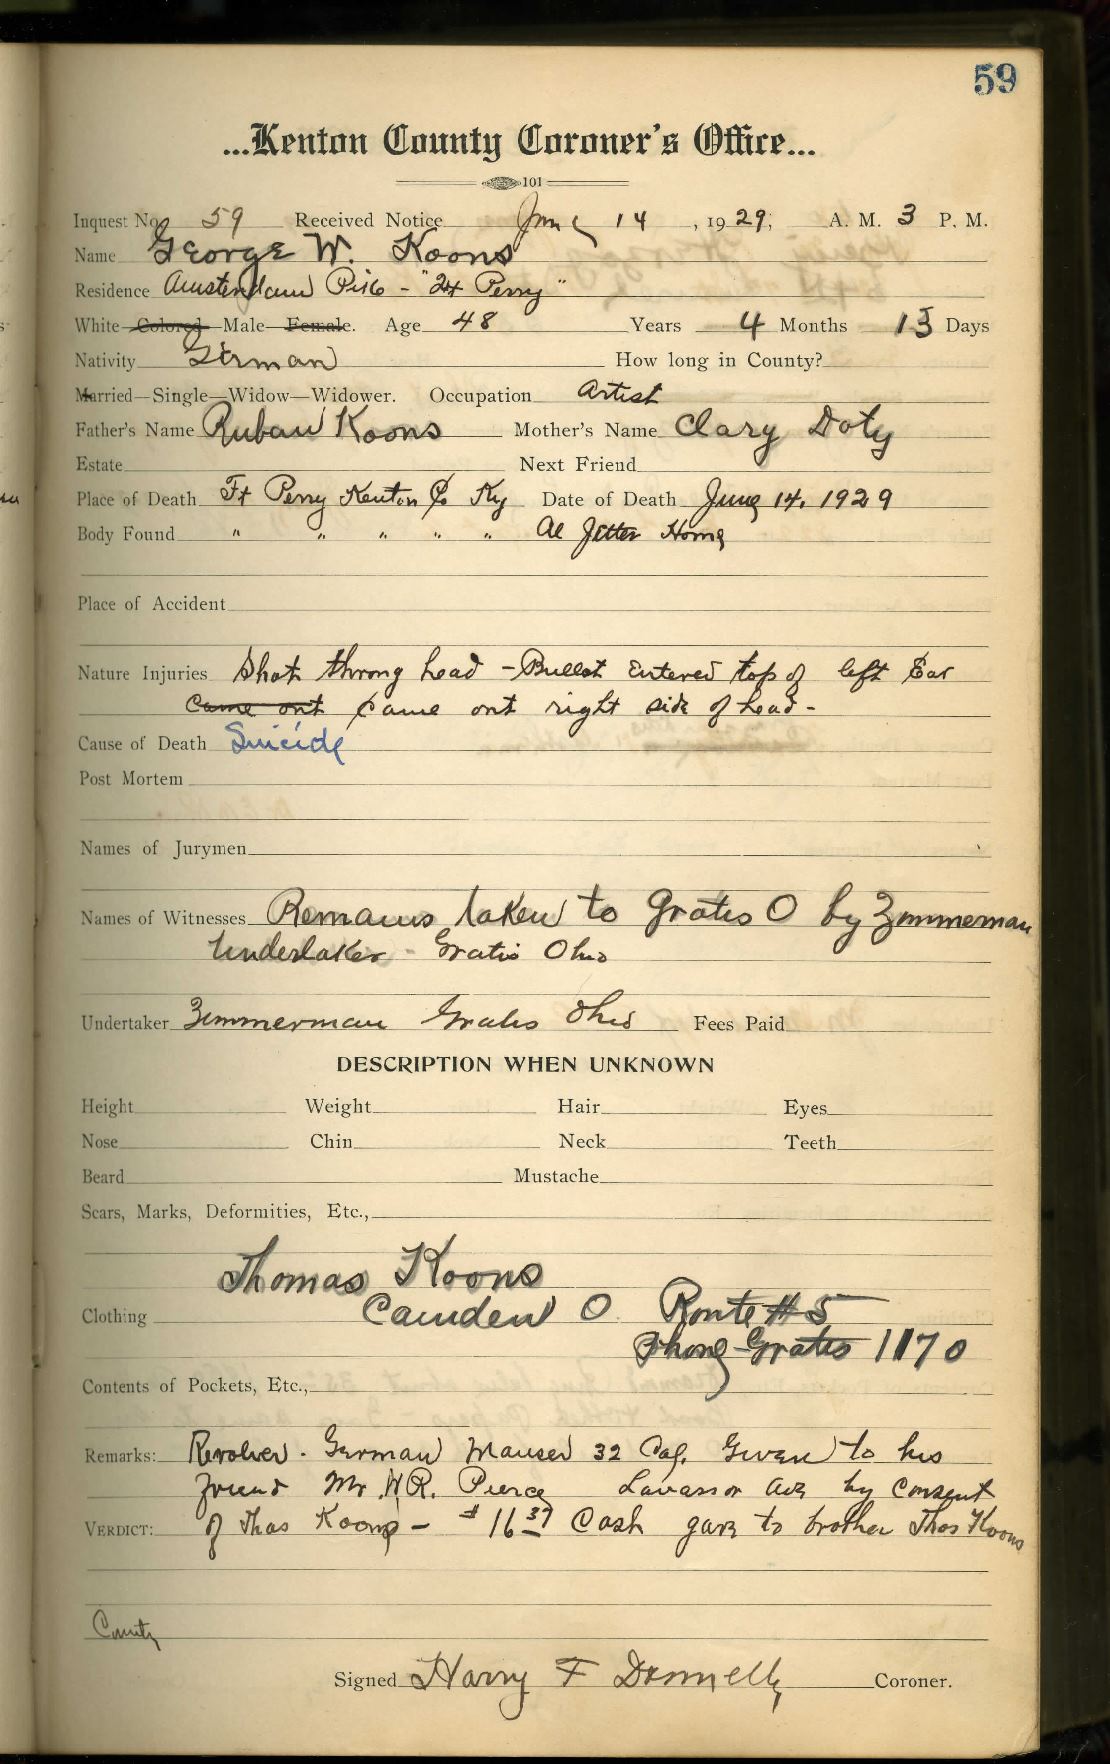 59
...Kenton County Coroner's Office...
101
Inquest No. 59 Received Notice June 14, 1929; A. M. 3 P. M.
Name George W. Koons
Residence Amsterdam Pike - "Ft Perry"
White—Colored—Male—Female. Age 48 Years 4 Months 13 Days
Nativity German How long in County?
Married—Single—Widow—Widower. Occupation Artist
Father's Name Ruban Koons Mother's Name Clary Doty
Estate Next Friend
Place of Death Ft Perry Kenton Co Ky Date of Death June 14, 1929
Body Found " " " " " Al Jetter Home
Place of Accident
Nature Injuries Shot throug head - Bullet Entered top of left Ear
Came out Came out right side of head -
Cause of Death Suicide
Post Mortem
Names of Jurymen
Names of Witnesses Remains taken to Gratis O by Zimmerman
Undertaker - Gratis Ohio
Undertaker Zimmerman Gratis Ohio Fees Paid
DESCRIPTION WHEN UNKNOWN
Height Weight Hair Eyes
Nose Chin Neck Teeth
Beard Mustache
Scars, Marks, Deformities, Etc.,
Thomas Koons
Clothing Camden O. Route # 5
Phone - Gratis 1170
Contents of Pockets, Etc.,
Remarks: Revolver - German Mauser 32 Cal. Given to his
friend Mr W.R. Pierce Lavassor ave by Consent
VERDICT: of Thos Koons - $16.37 Cash gave to brother Thos Koons
County
Signed Harry F Donnelly Coroner.